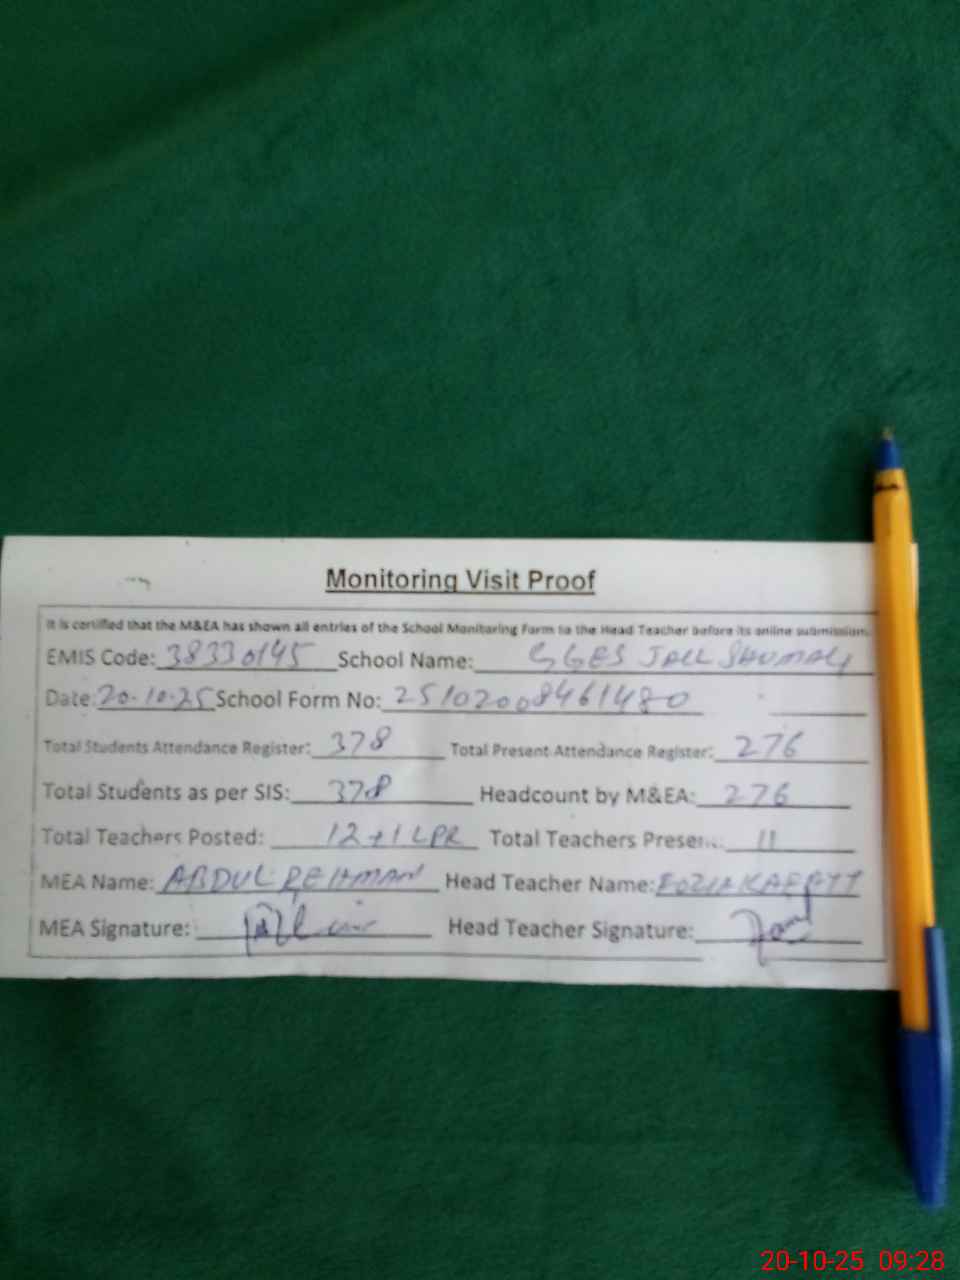 Monitoring Visit Proof
It is certified that the M&EA has shown all entries of the School Monitoring Form to the Head Teacher before its online submission.
EMIS Code: 38330145 School Name: GGES JALL SHUMALI
Date: 20-10-25 School Form No: 25102008461480
Total Students Attendance Register: 378 Total Present Attendance Register: 276
Total Students as per SIS: 378 Headcount by M&EA: 276
Total Teachers Posted: 12+1 LPR Total Teachers Present: 11
MEA Name: ABDUL REHMAN Head Teacher Name: FOZIA
MEA Signature: Head Teacher Signature:
20-10-25 09:28